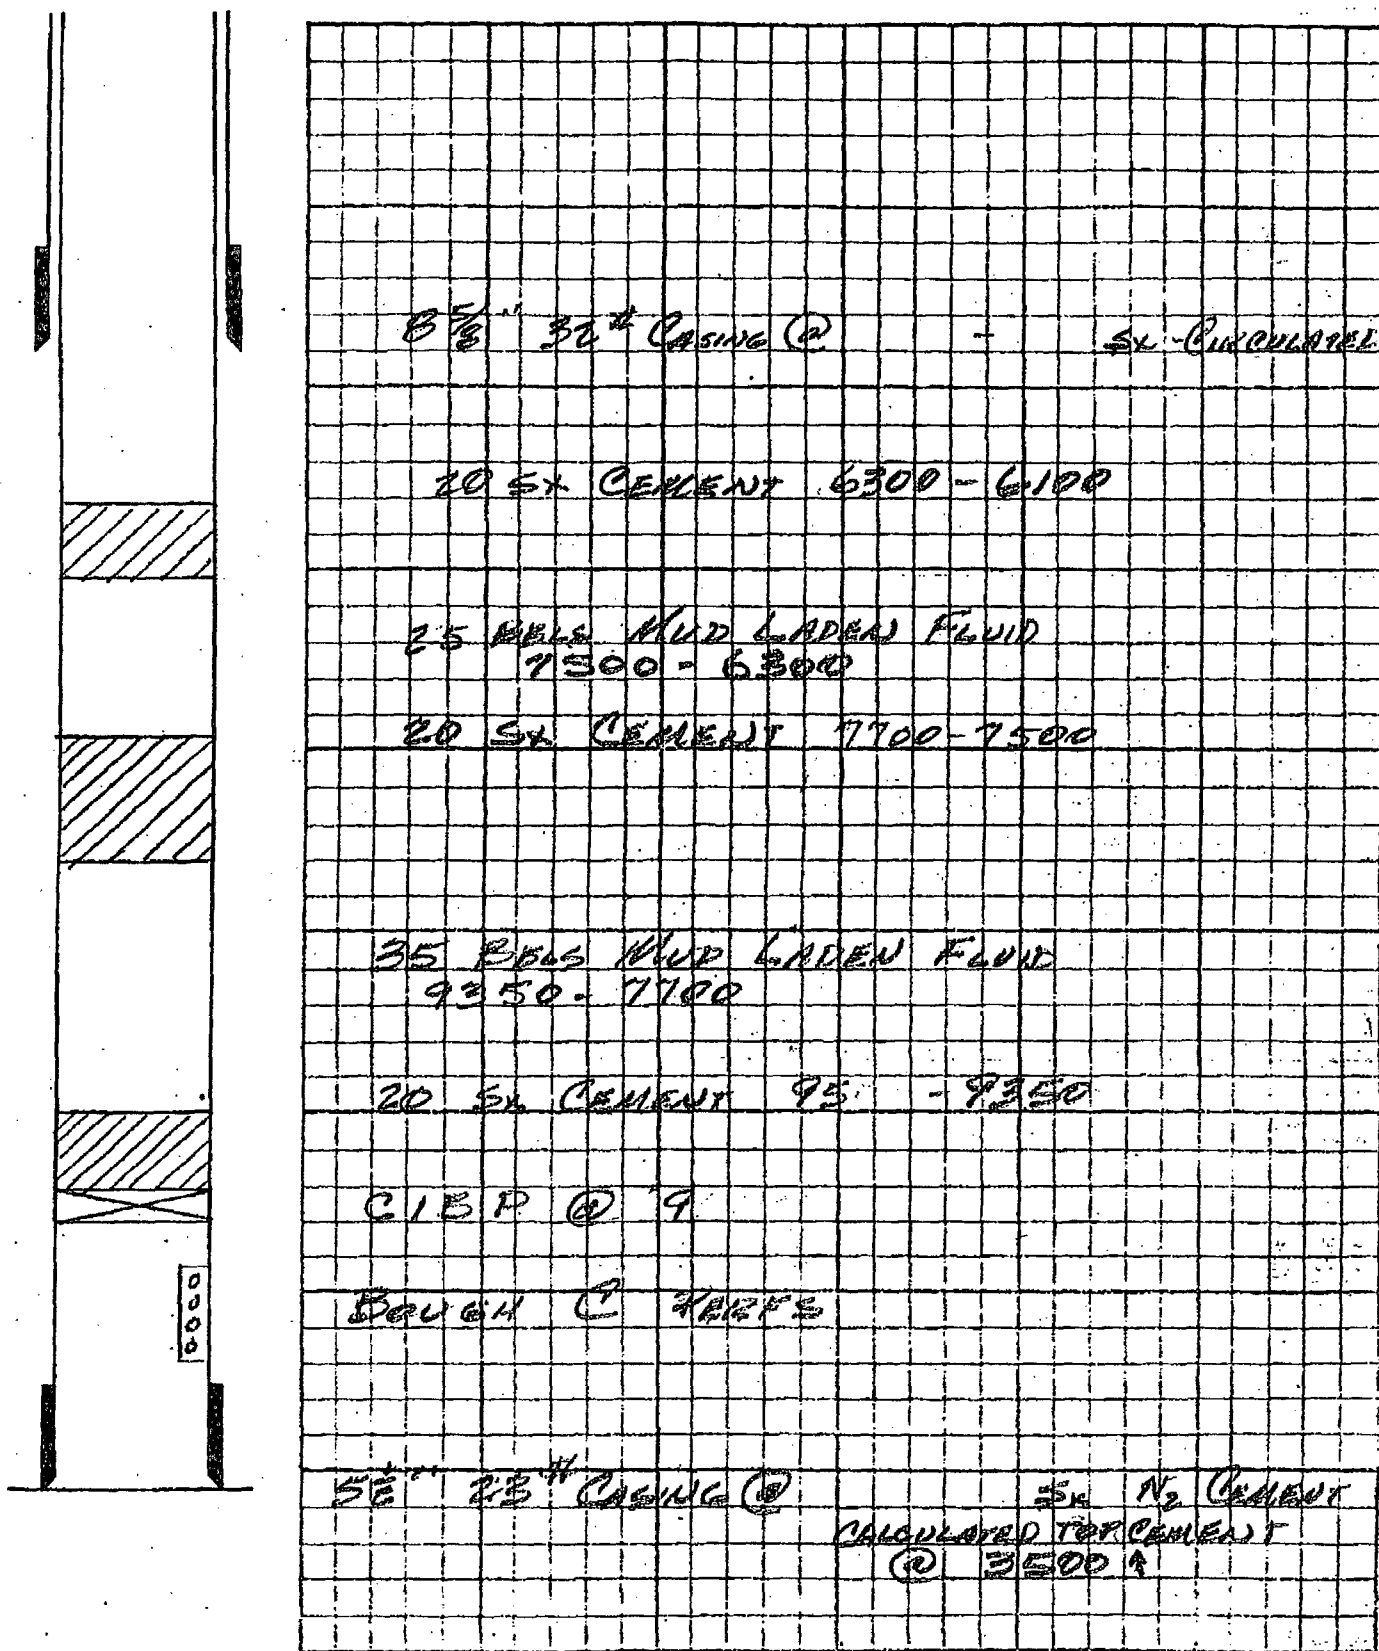 8 5/8" 32# CASING @ - SX - CIRCULATED
20 SX CEMENT 6300 - 6100
25 BBLS MUD LADEN FLUID
7500 - 6300
20 SX CEMENT 7700 - 7500
35 BBLS MUD LADEN FLUID
9350 - 7700
20 SX CEMENT 95 - 9350
CIBP @ 9
BOUGH C PERFS
5 1/2" 23# CASING @ SX N2 CEMENT
CALCULATED TOP CEMENT
@ 3500 ↑